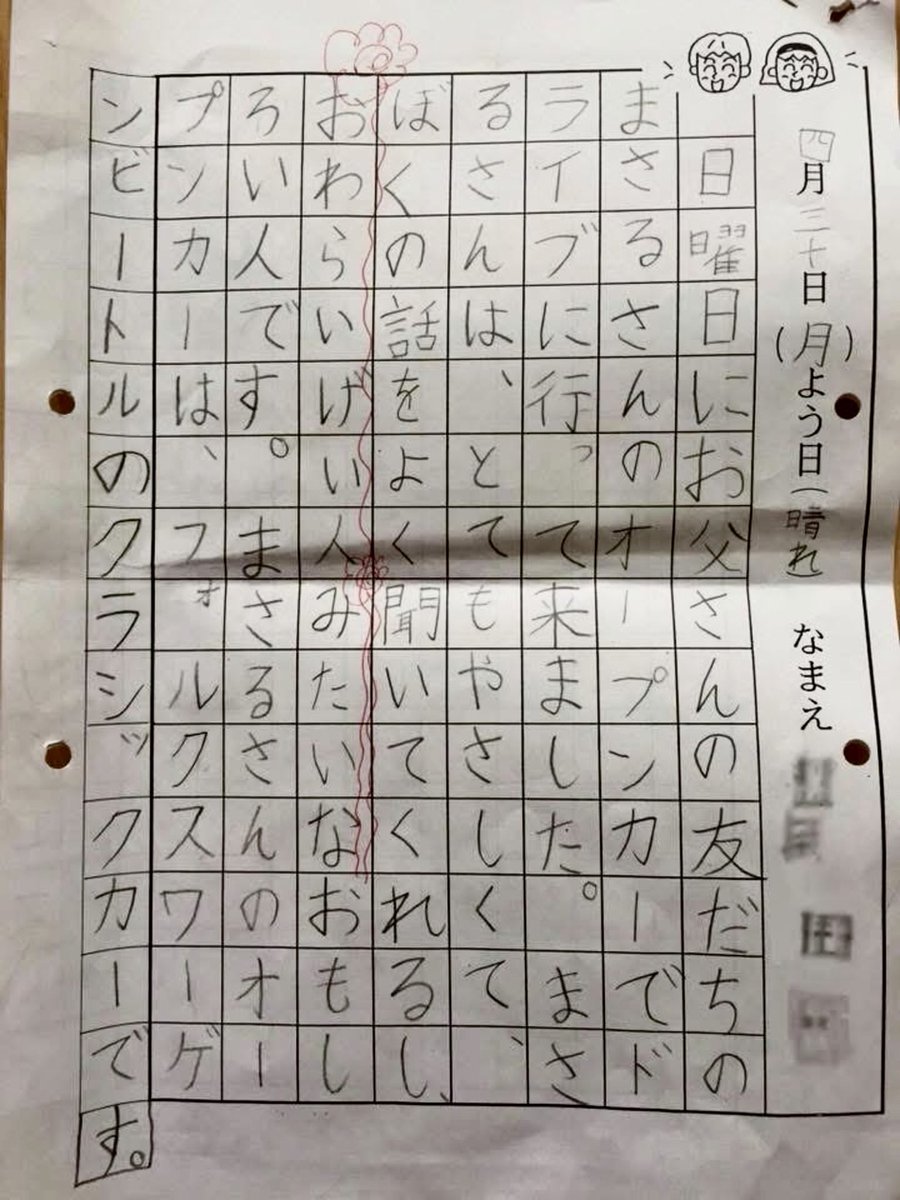 四月三十日(月)よう日(晴れ) なまえ
日曜日にお父さんの友だちの
まさるさんのオープンカーでド
ライブに行って来ました。まさ
るさんは、とてもやさしくて、
ぼくの話をよく聞いてくれるし、
おわらいげい人みたいなおもし
ろい人です。まさるさんのオー
プンカーは、フォルクスワーゲ
ンビートルのクラシックカーです。